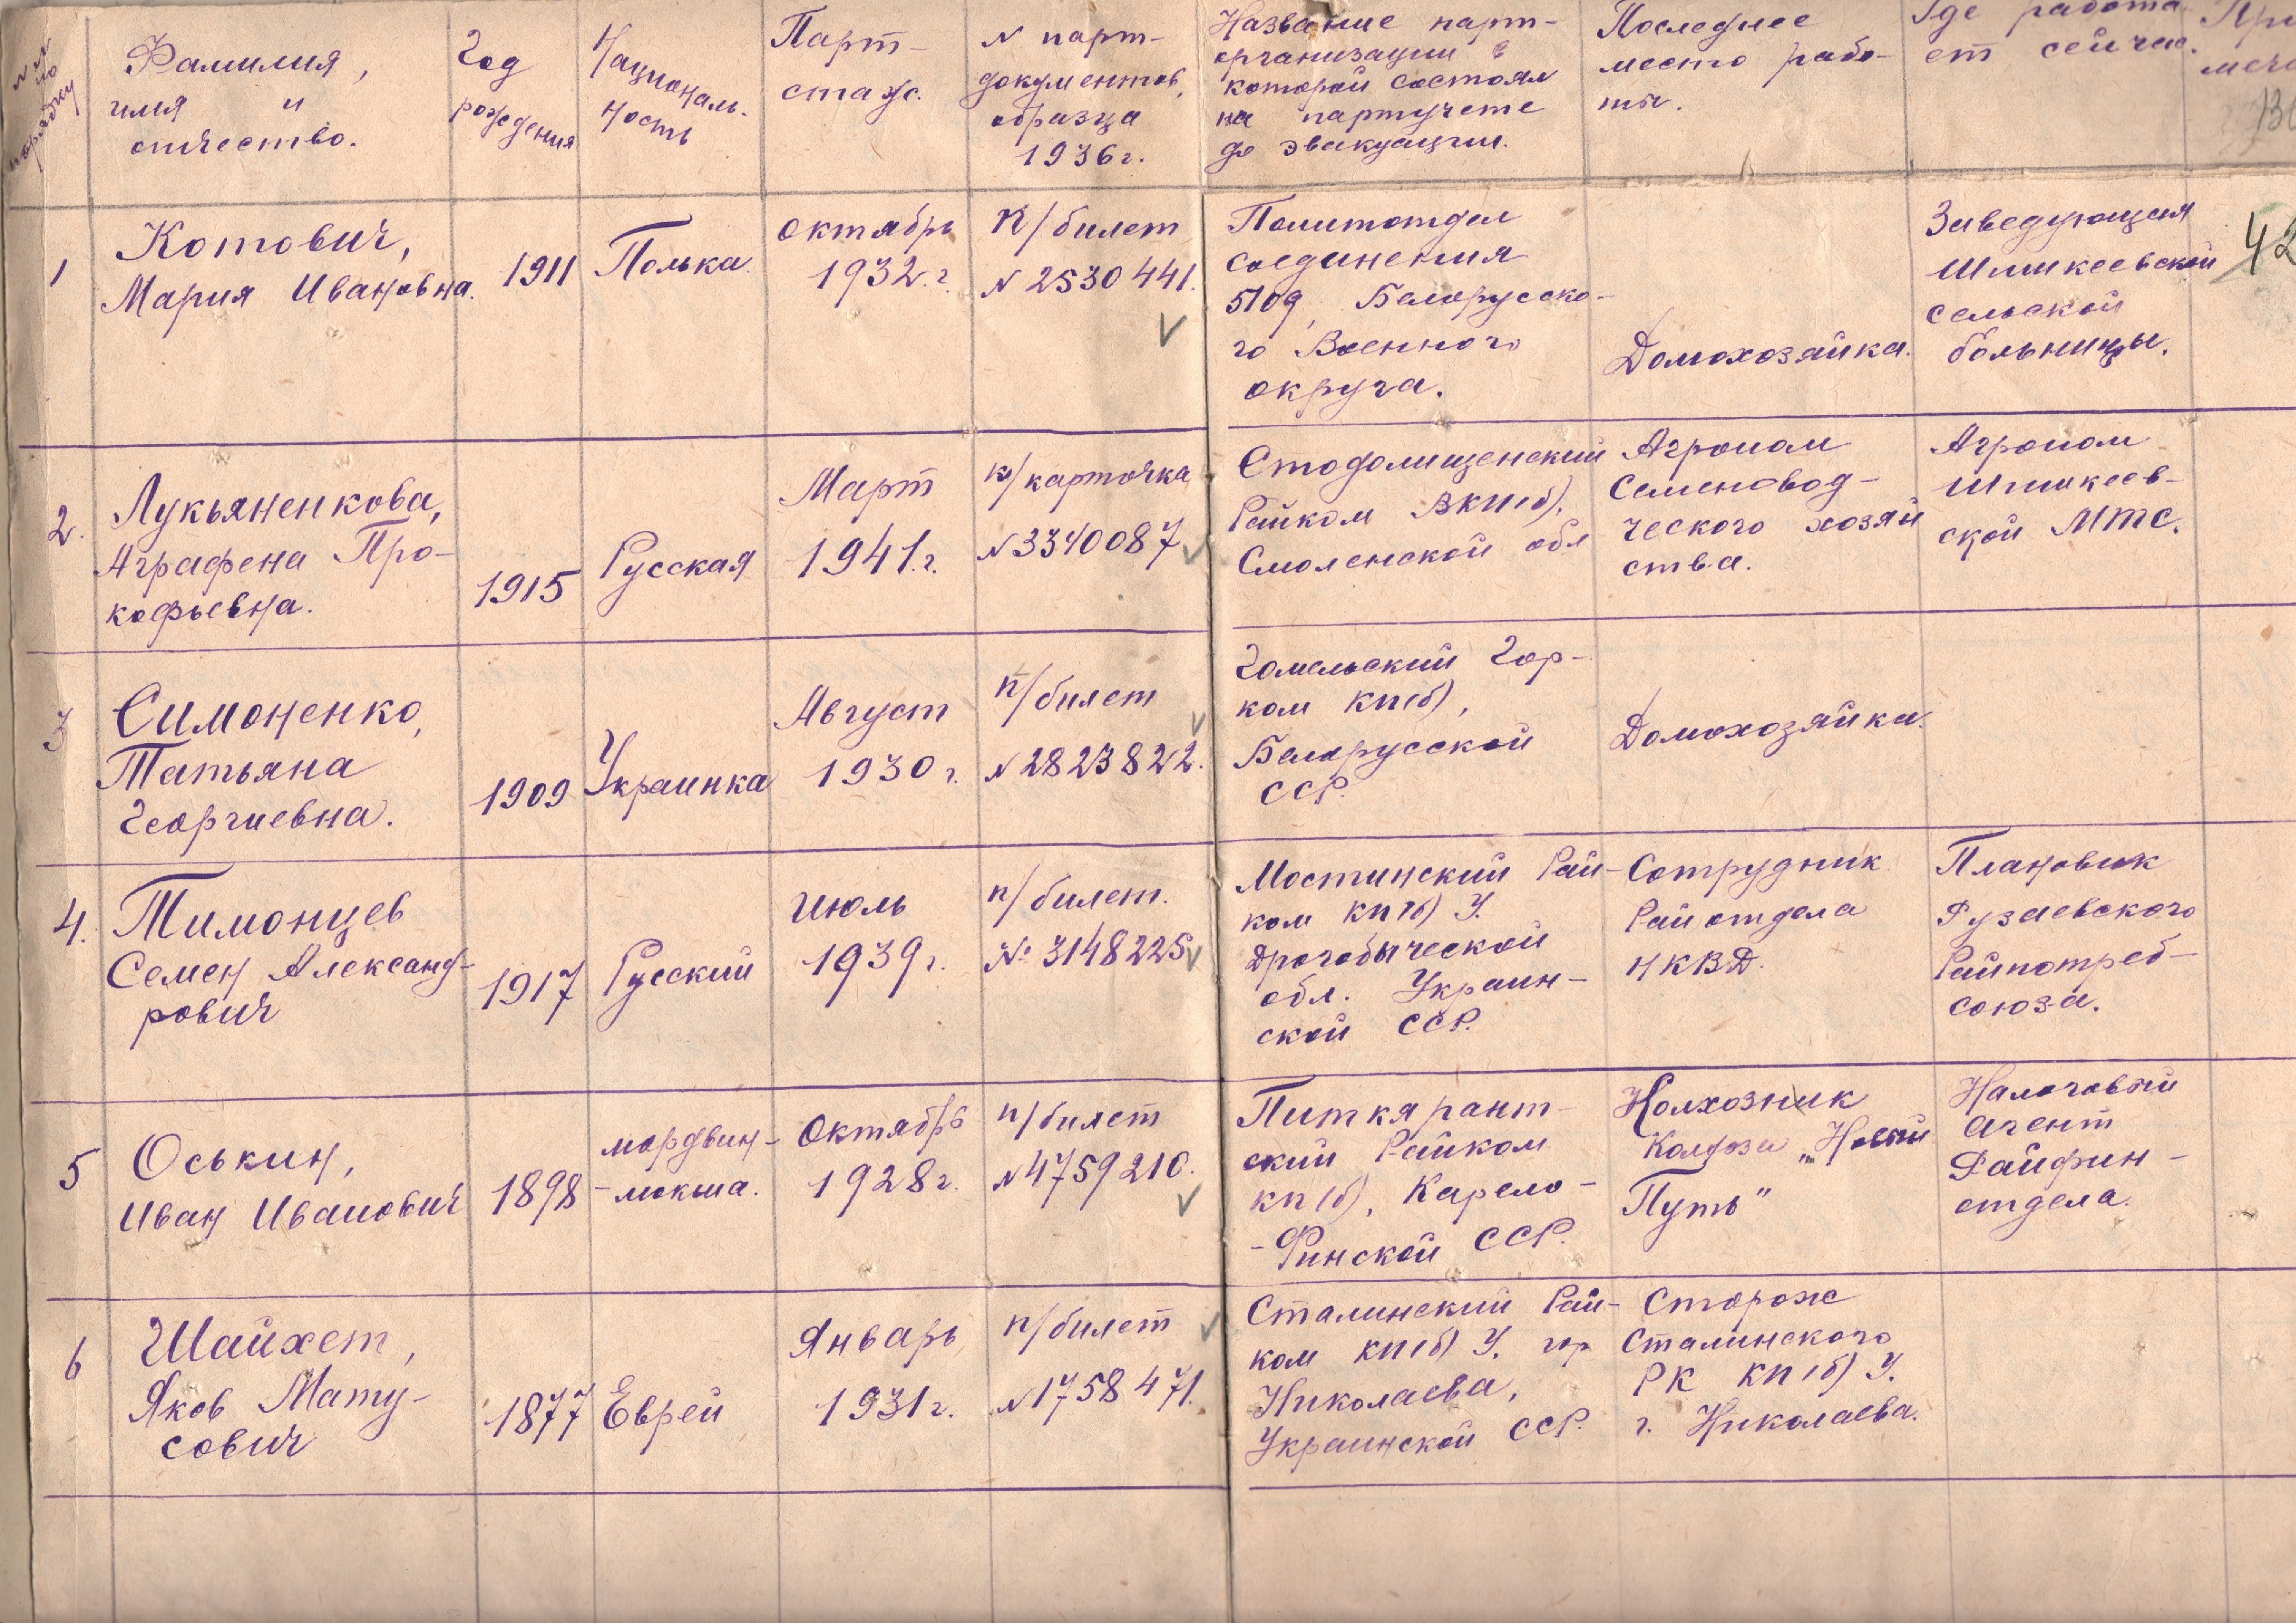 №№ по порядку
Фамилия,
имя и
отчество.
Год
рождения
Националь-
ность
Парт-
стаж.
N парт-
документов,
образца
1936 г.
Название парт-
организации в
которой состоял
на партучете
до эвакуации.
Последнее
место рабо-
ты.
Где работа-
ет сейчас.
При
меча
1
Котович,
Мария Ивановна.
1911
Полька
Октябрь
1932. г.
К/билет
N 2530441.
Политотдел
соединения
5109, Белорусско-
го Военного
округа.
Домохозяйка.
Заведующая
Шишкеевской
сельской
больницы.
42
2.
Лукьяненкова,
Аграфена Про-
кофьевна.
1915
Русская
Март
1941. г.
к/карточка
N 3340087
Стодолищенский
Райком ВКП(б),
Смоленской обл
Агроном
Семеновод-
ческого хозяй
ства.
Агроном
Шишкеев-
ской МТС.
3
Симоненко,
Татьяна
Георгиевна.
1909
Украинка
Август
1930 г.
п/билет
N 2823822.
Гомельский Гор-
ком КП(б),
Белорусской
ССР.
Домохозяйка.
4.
Тимонцев
Семен Александ-
рович
1917
Русский
Июль
1939 г.
п/билет.
№ 3148225
Мостинский Рай-
ком КП(б) У.
Дрогобыческой
обл. Украин-
ской ССР.
Сотрудник
Райотдела
НКВД.
Плановик
Рузаевского
Райпотреб-
союза.
5
Оськин,
Иван Иванович
1898
мордвин-
-мокша.
Октябрь
1928 г.
п/билет
N 4759210.
Питкярант-
ский Райком
КП(б), Карело-
-Финской ССР.
Колхозник
Колхоза „Новый
Путь"
Налоговый
агент
Райфин-
отдела.
6
Шайхет,
Яков Мату-
сович
1877
Еврей
Январь
1931 г.
п/билет
N 1758471.
Сталинский Рай-
ком КП(б) У. гор
Николаева,
Украинской ССР.
Сторож
Сталинского
РК КП(б) У.
г. Николаева.